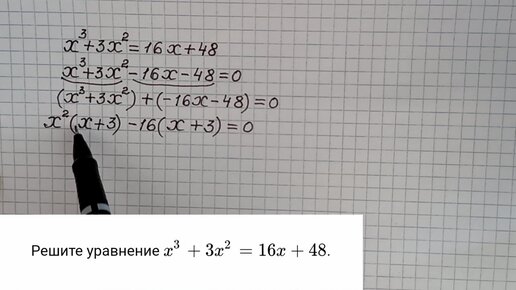 x³+3x²=16x+48
x³+3x²-16x-48=0
(x³+3x²)+(-16x-48)=0
x²(x+3)-16(x+3)=0
Решите уравнение x³ + 3x² = 16x + 48.